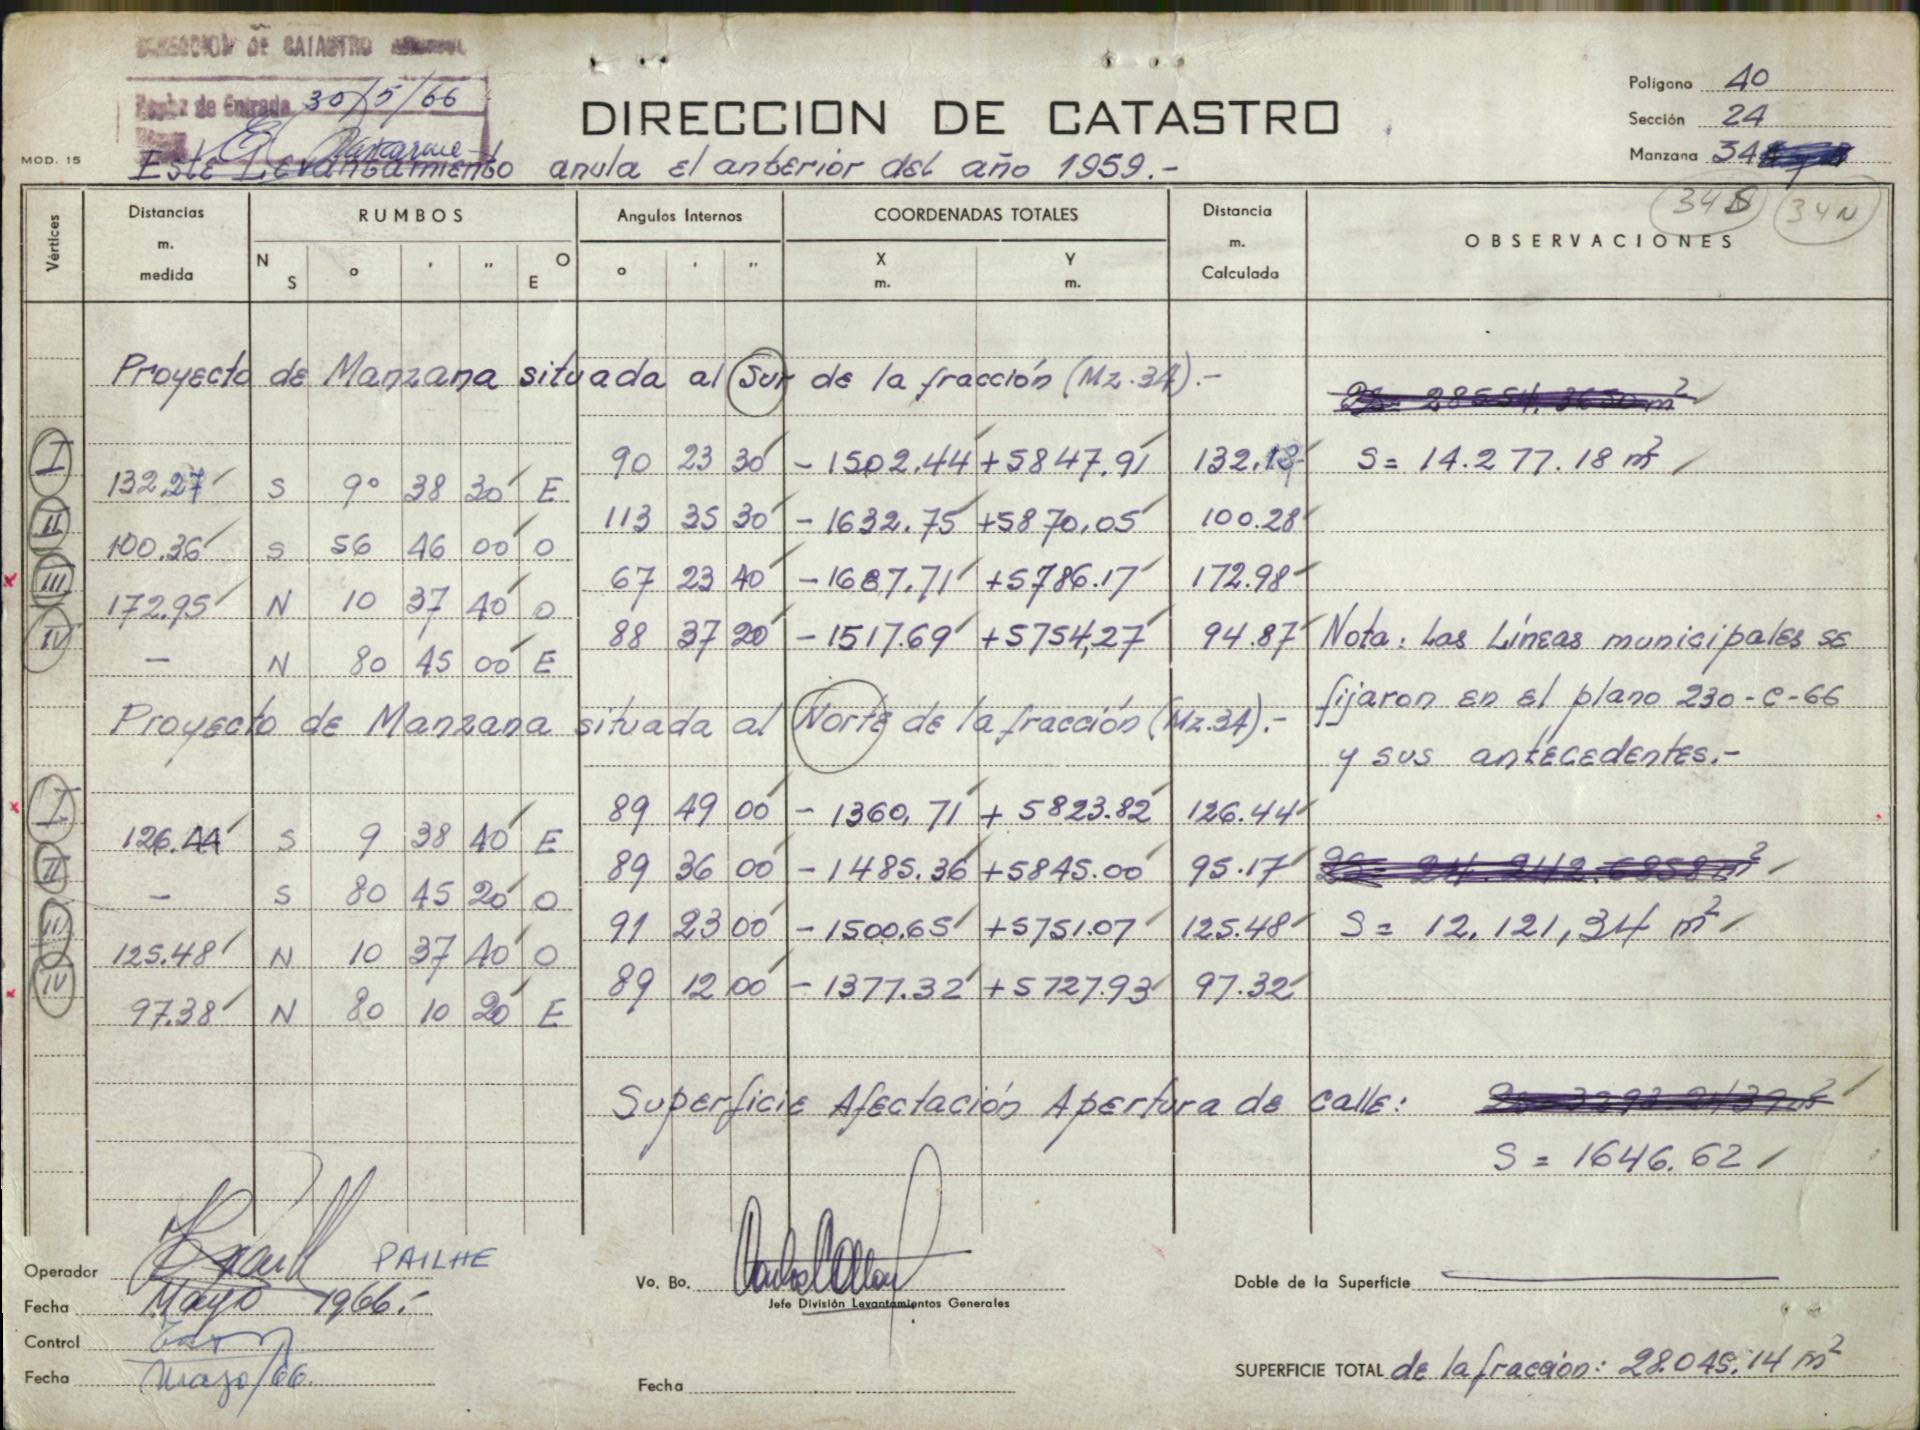 DIRECCION DE CATASTRO
Fecha de Entrada 30/5/66
DIRECCION DE CATASTRO
Polígono 40
Sección 24
Manzana 34
MOD. 15
Este Levantamiento anula el anterior del año 1959.-
34S 34N
Vértices
Distancias m. medida
RUMBOS
N S ° ' " O E
Angulos Internos
° ' "
COORDENADAS TOTALES
X m. Y m.
Distancia m. Calculada
OBSERVACIONES
Proyecto de Manzana situada al Sur de la fracción (Mz.34).-
I 90 23 30 - 1502.44 +5847.91 132.18 S= 14.277.18 m²
132.27 S 9° 38 30 E
II 113 35 30 - 1632.75 +5870.05 100.28
100.36 S 56 46 00 O
III 67 23 40 - 1687.71 +5786.17 172.98
172.95 N 10 37 40 O
IV 88 37 20 - 1517.69 +5754,27 94.87 Nota: Las Líneas municipales se
— N 80 45 00 E
fijaron en el plano 230-C-66
Proyecto de Manzana situada al Norte de la fracción (Mz.34).-
y sus antecedentes.-
I 89 49 00 - 1360,71 + 5823.82 126.44
126.44 S 9 38 40 E
II 89 36 00 - 1485.36 +5845.00 95.17
— S 80 45 20 O
III 91 23 00 - 1500.65 +5751.07 125.48 S= 12.121,34 m²
125.48 N 10 37 40 O
IV 89 12 00 - 1377.32 +5727.93 97.32
97.38 N 80 10 20 E
Superficie Afectación Apertura de calle:
S = 1646.62
Operador PAILHE
Fecha Mayo 1966.-
Control
Fecha Mayo/66.
Vo. Bo.
Jefe División Levantamientos Generales
Fecha
Doble de la Superficie
SUPERFICIE TOTAL de la fracción: 28.045.14 m²